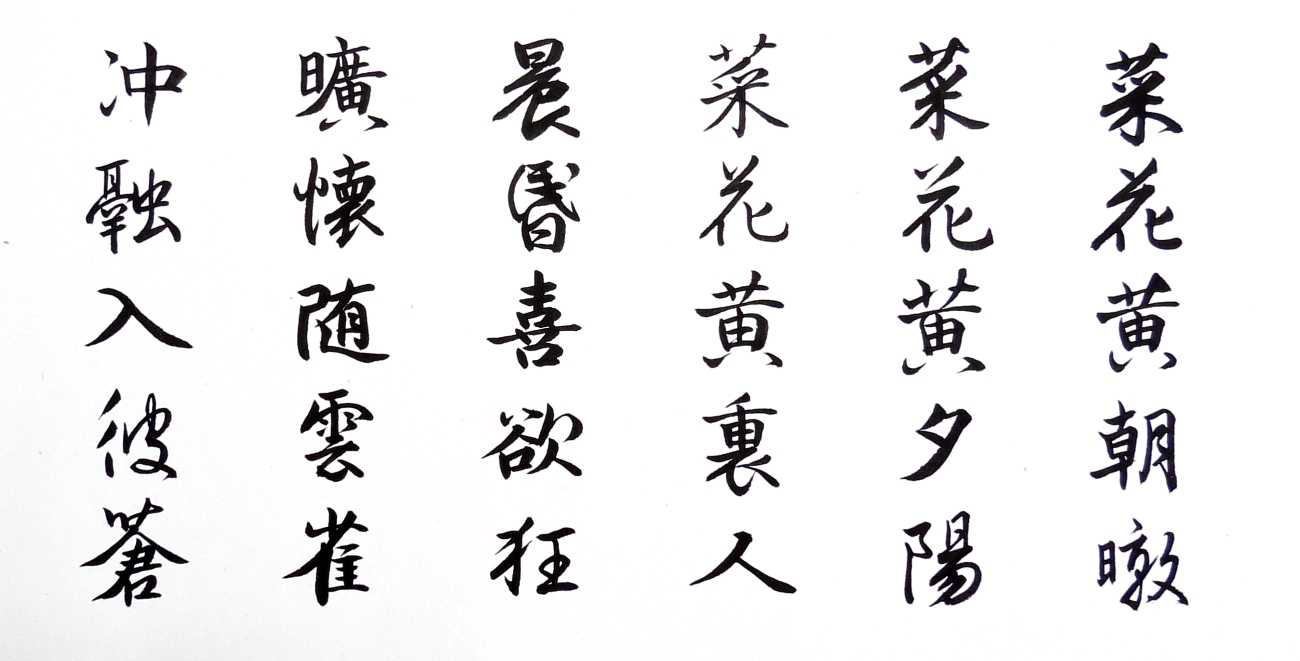 菜花黄朝暾
菜花黄夕陽
菜花黄裏人
晨昏喜欲狂
曠懐随雲雀
沖融入彼蒼